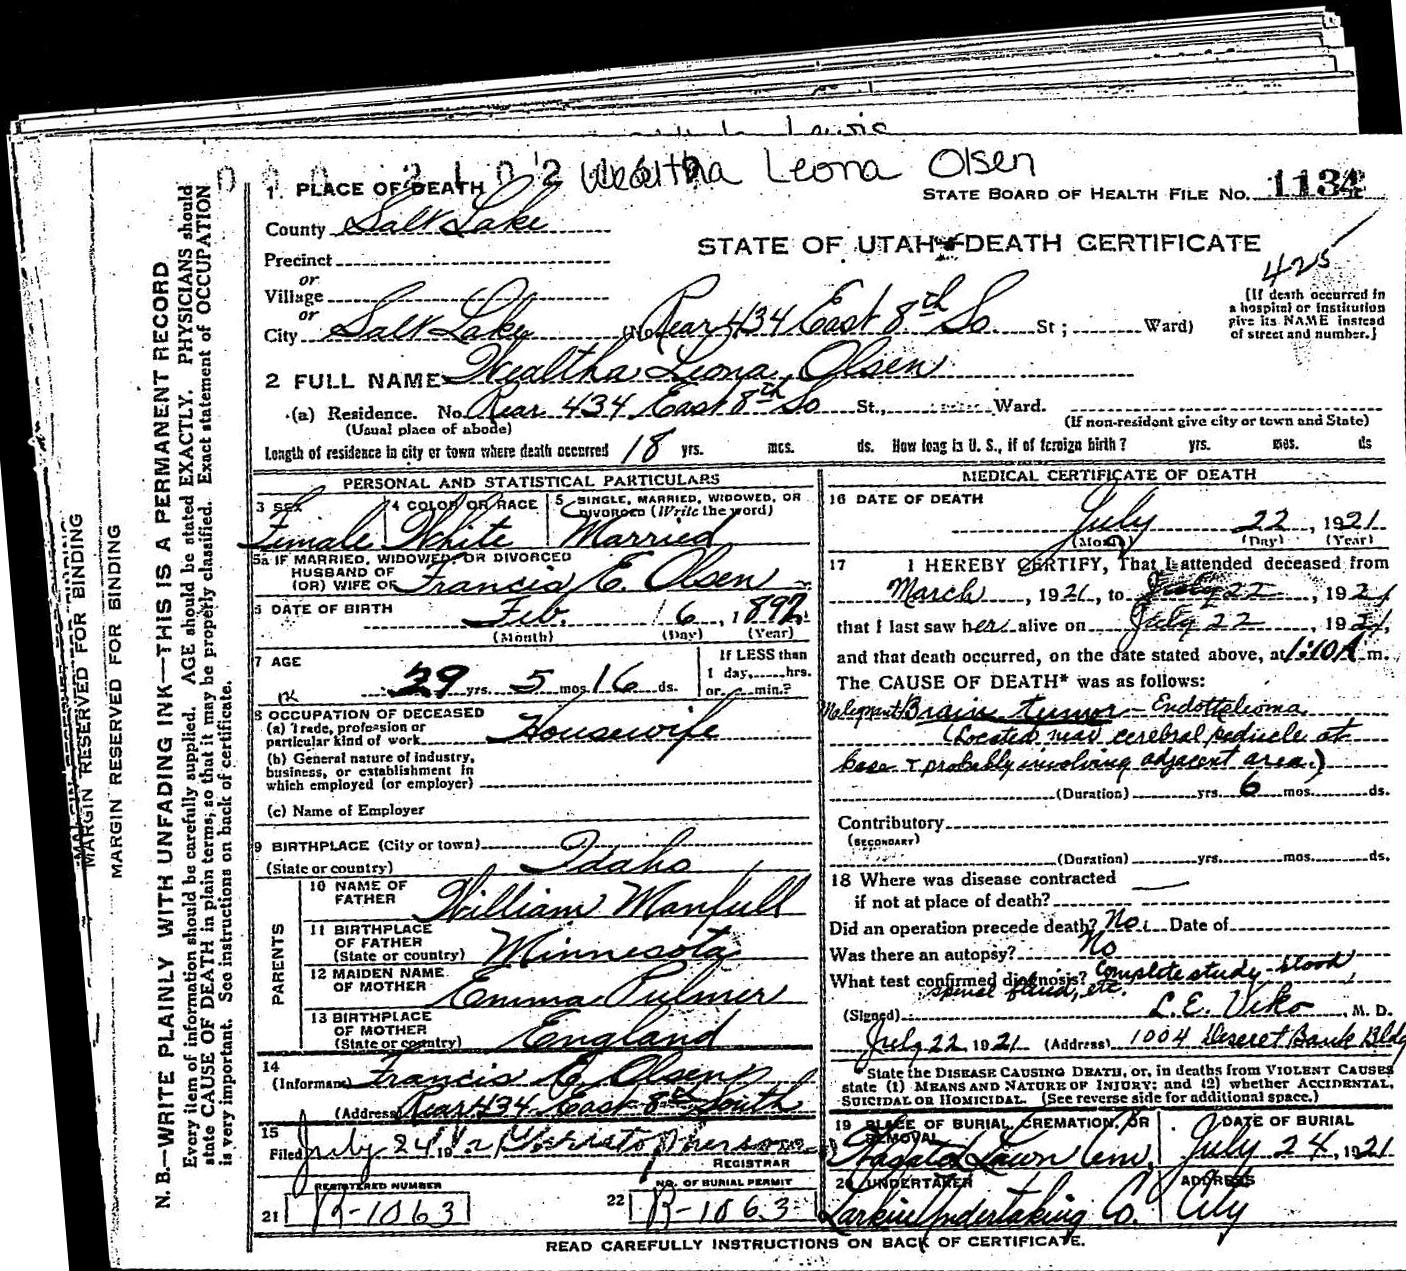 Lewis
Wealtha Leona Olsen
1. PLACE OF DEATH
STATE BOARD OF HEALTH FILE NO. 1134
County Salt Lake
STATE OF UTAH—DEATH CERTIFICATE
Precinct
425
or
Village
or
City Salt Lake (No. Rear 434 East 8th So St; Ward)
(If death occurred in
a hospital or institution
give its NAME instead
of street and number.)
2 FULL NAME Wealtha Leona Olsen
(a) Residence. No. Rear 434 East 8th So St., Ward.
(Usual place of abode)
(If non-resident give city or town and State)
Length of residence in city or town where death occurred 18 yrs. mos. ds. How long in U. S., if of foreign birth? yrs. mos. ds
PERSONAL AND STATISTICAL PARTICULARS
3 SEX Female
4 COLOR OR RACE White
5 SINGLE, MARRIED, WIDOWED, OR
DIVORCED (Write the word)
Married
5a IF MARRIED, WIDOWED, OR DIVORCED
HUSBAND OF
(OR) WIFE OF Francis E. Olsen
6 DATE OF BIRTH Feb. 6, 1892
(Month) (Day) (Year)
7 AGE 29 yrs. 5 mos. 16 ds.
If LESS than
1 day, hrs.
or min.?
8 OCCUPATION OF DECEASED
(a) Trade, profession or
particular kind of work Housewife
(b) General nature of industry,
business, or establishment in
which employed (or employer)
(c) Name of Employer
9 BIRTHPLACE (City or town)
(State or country) Idaho
PARENTS
10 NAME OF
FATHER William Manfull
11 BIRTHPLACE
OF FATHER
(State or country) Minnesota
12 MAIDEN NAME
OF MOTHER Emma Pulmer
13 BIRTHPLACE
OF MOTHER
(State or country) England
14
(Informant) Francis E. Olsen
(Address) Rear 434 East 8th South
15
Filed July 24 1921 Christopherson
REGISTRAR
REGISTERED NUMBER
21 R-1063
NO. OF BURIAL PERMIT
22 R-1063
MEDICAL CERTIFICATE OF DEATH
16 DATE OF DEATH
July 22, 1921
(Month) (Day) (Year)
17 I HEREBY CERTIFY, That I attended deceased from
March, 1921, to July 22, 1921
that I last saw her alive on July 22, 1921,
and that death occurred, on the date stated above, at 1:10 A m.
The CAUSE OF DEATH* was as follows:
Malignant Brain tumor - Endothelioma
(Located near cerebral peduncle at
base & probably involving adjacent area.)
(Duration) yrs. 6 mos. ds.
Contributory
(SECONDARY)
(Duration) yrs. mos. ds.
18 Where was disease contracted
if not at place of death?
Did an operation precede death? No. Date of
Was there an autopsy? No
What test confirmed diagnosis? Complete study - blood
spinal fluid, etc.
(Signed) L. E. Viko, M. D.
July 22, 1921 (Address) 1004 Deseret Bank Bldg
State the DISEASE CAUSING DEATH, or, in deaths from VIOLENT CAUSES
state (1) MEANS AND NATURE OF INJURY; and (2) whether ACCIDENTAL,
SUICIDAL OR HOMICIDAL. (See reverse side for additional space.)
19 PLACE OF BURIAL, CREMATION, OR
REMOVAL
Wasatch Lawn Cem.
DATE OF BURIAL
July 24, 1921
20 UNDERTAKER
Larkin Undertaking Co.
ADDRESS
City
READ CAREFULLY INSTRUCTIONS ON BACK OF CERTIFICATE.
MARGIN RESERVED FOR BINDING
MARGIN RESERVED FOR BINDING
N. B.—WRITE PLAINLY WITH UNFADING INK—THIS IS A PERMANENT RECORD
Every item of information should be carefully supplied. AGE should be stated EXACTLY. PHYSICIANS should
state CAUSE OF DEATH in plain terms, so that it may be properly classified. Exact statement of OCCUPATION
is very important. See instructions on back of certificate.